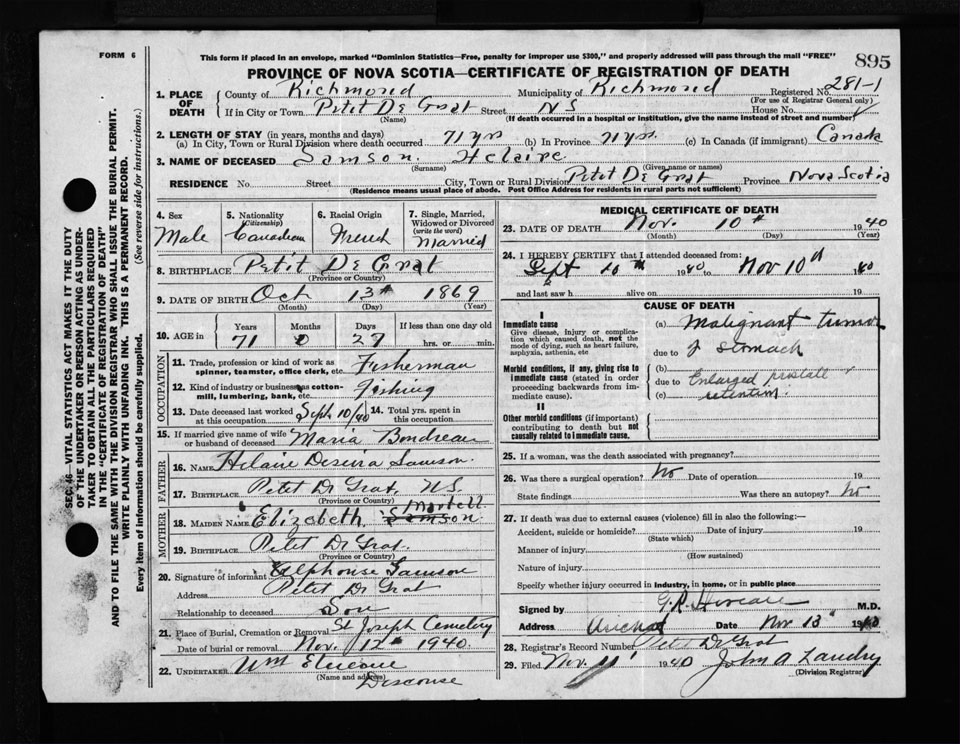 FORM 6
This form if placed in an envelope, marked “Dominion Statistics—Free, penalty for improper use $300,” and properly addressed will pass through the mail “FREE”
895
PROVINCE OF NOVA SCOTIA—CERTIFICATE OF REGISTRATION OF DEATH
281-1
1. PLACE OF DEATH
County of Richmond Municipality of Richmond Registered No.
(For use of Registrar General only)
If in City or Town Petit De Grat Street NS House No.
(Name) (If death occurred in a hospital or institution, give the name instead of street and number)
2. LENGTH OF STAY (in years, months and days)
(a) In City, Town or Rural Division where death occurred 71 yrs (b) In Province 71 yrs. (c) In Canada (if immigrant) Canada
3. NAME OF DECEASED Samson. Helaire
(Surname) (Given name or names)
RESIDENCE No. Street City, Town or Rural Division Petit De Grat Province Nova Scotia
(Residence means usual place of abode. Post Office Address for residents in rural parts not sufficient)
4. Sex Male
5. Nationality (Citizenship) Canadian
6. Racial Origin French
7. Single, Married, Widowed or Divorced (write the word) Married
8. BIRTHPLACE Petit De Grat
(Province or Country)
9. DATE OF BIRTH Oct 13th 1869
(Month) (Day) (Year)
10. AGE in Years Months Days If less than one day old
71 0 27 hrs. or min.
OCCUPATION
11. Trade, profession or kind of work as spinner, teamster, office clerk, etc. Fisherman
12. Kind of industry or business as cotton-mill, lumbering, bank, etc. Fishing
13. Date deceased last worked at this occupation Sept 10/40 14. Total yrs. spent in this occupation
15. If married give name of wife or husband of deceased Maria Bondreau
FATHER
16. NAME Helaire Samson.
17. BIRTHPLACE Petit De Grat, N.S.
(Province or Country)
MOTHER
18. MAIDEN NAME Elizabeth. Samson Martell
19. BIRTHPLACE Petit De Grat.
(Province or Country)
20. Signature of informant Alphonse Samson
Address Petit De Grat
Relationship to deceased Son
21. Place of Burial, Cremation or Removal St Joseph Cemetery
Date of burial or removal Nov. 12th 1940.
22. UNDERTAKER Wm
(Name and address) Discouse
MEDICAL CERTIFICATE OF DEATH
23. DATE OF DEATH Nov. 10th 1940
(Month) (Day) (Year)
24. I HEREBY CERTIFY that I attended deceased from:
Sept 10th 1940 to Nov 10th 1940
and last saw h alive on 19
CAUSE OF DEATH
I
Immediate cause
Give disease, injury or complication which caused death, not the mode of dying, such as heart failure, asphyxia, asthenia, etc
(a) Malignant tumor
due to of stomach
Morbid conditions, if any, giving rise to immediate cause (stated in order proceeding backwards from immediate cause).
(b)
due to Enlarged prostate
(c) retention.
II
Other morbid conditions (if important) contributing to death but not causally related to immediate cause.
25. If a woman, was the death associated with pregnancy?
26. Was there a surgical operation? No Date of operation 19
State findings Was there an autopsy? No
27. If death was due to external causes (violence) fill in also the following:—
Accident, suicide or homicide? Date of injury 19
(State which)
Manner of injury
(How sustained)
Nature of injury
Specify whether injury occurred in industry, in home, or in public place
Signed by M.D.
Address Arichat Date Nov 13th 1940
28. Registrar's Record Number Petit De Grat
29. Filed Nov. 11 1940 John A Landry
(Division Registrar)
SEC. 46—VITAL STATISTICS ACT MAKES IT THE DUTY
OF THE UNDERTAKER OR PERSON ACTING AS UNDER-
TAKER TO OBTAIN ALL THE PARTICULARS REQUIRED
IN THE “CERTIFICATE OF REGISTRATION OF DEATH”
AND TO FILE THE SAME WITH THE DIVISION REGISTRAR WHO SHALL ISSUE THE BURIAL PERMIT.
WRITE PLAINLY WITH UNFADING INK. THIS IS A PERMANENT RECORD.
Every item of information should be carefully supplied. (See reverse side for instructions.)